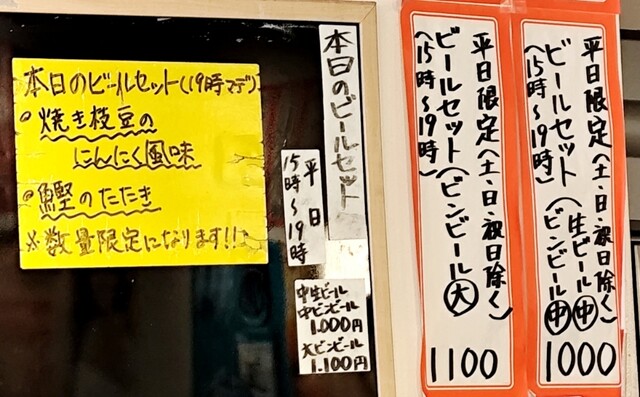 本日のビールセット(19時マデ)
焼き枝豆の
にんにく風味
鰹のたたき
※数量限定になります!!!
本日のビールセット
平日
15時〜19時
中生ビール
中ビンビール
1.000円
大ビンビール
1.100円
平日限定(土・日・祝日除く)
ビールセット(ビンビール大)
(15時〜19時)
1100
平日限定(土・日・祝日除く)
ビールセット(生ビール中
ビンビール中)
(15時〜19時)
1000